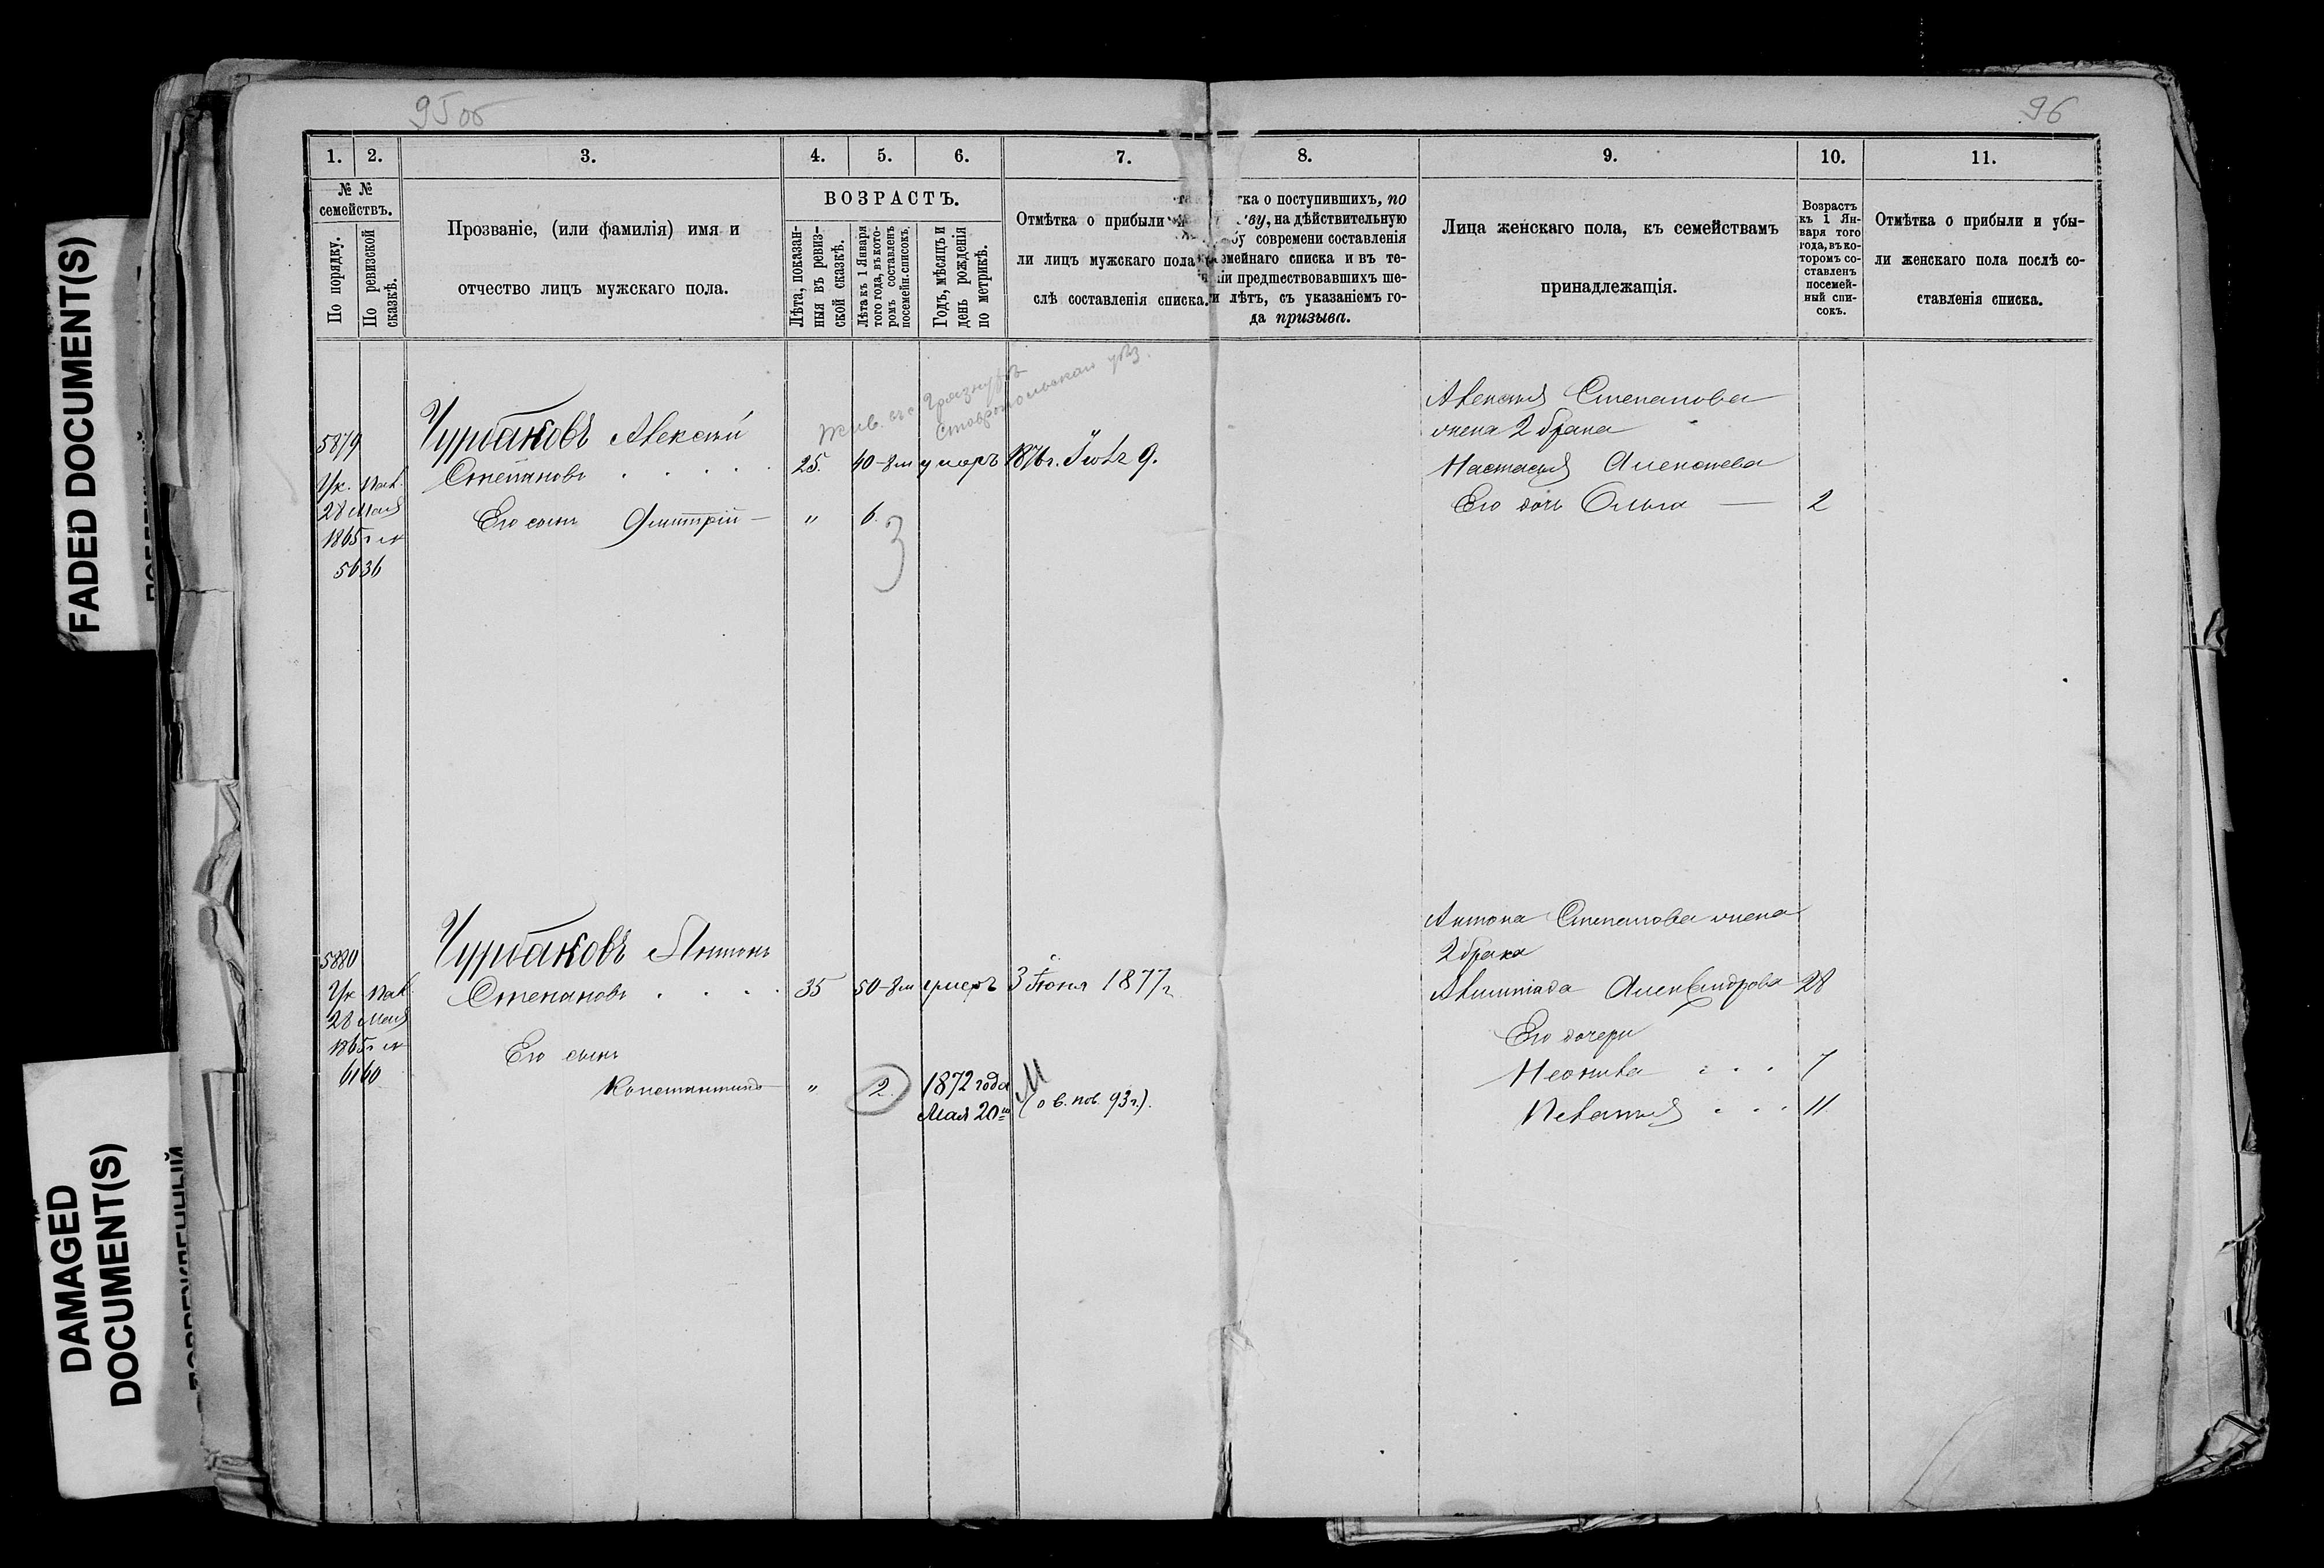 FADED DOCUMENT(S)
DAMAGED
DOCUMENT(S)
95об
96
1.
2.
3.
4.
5.
6.
7.
8.
9.
10.
11.
№ №
семействъ.
По порядку.
По ревизской
сказкѣ.
Прозваніе, (или фамилія) имя и
отчество лицъ мужскаго пола.
ВОЗРАСТЪ.
Лѣта, показан-
ныя въ ревиз-
ской сказкѣ.
Лѣта къ 1 Января
того года, въ кото-
ромъ составленъ
посемейн. списокъ.
Годъ, мѣсяцъ и
день рожденія
по метрикѣ.
Отмѣтка о прибыли и
ли лицъ мужскаго пола
слѣ составленія списка.
тка о поступившихъ, по
ву, на дѣйствительную
бу со времени составленія
мейнаго списка и въ те-
іи предшествовавшихъ ше-
и лѣтъ, съ указаніемъ го-
да призыва.
Лица женскаго пола, къ семействамъ
принадлежащія.
Возрастъ
къ 1 Ян-
варя того
года, въ ко-
торомъ со-
ставленъ
посемей-
ный спи-
сокъ.
Отмѣтка о прибыли и убы-
ли женскаго пола послѣ со-
ставленія списка.
Жив. въ с.
Ставропольскаго уѣз.
5879
Ук. Пал.
28 Мая
1865 г №
5636
Чурбаковъ Алексѣй
Степановъ
25.
40-8 м
умеръ 1876 г. Іюля 9.
Его сынъ Дмитрій —
"
6.
3
Алексѣя Степанова
жена 2 брака
Настасья Алексѣева
Его дочь Ольга — 2
5880
Ук Пал.
28 Мая
1865 г №
6160
Чурбаковъ Антонъ
Степановъ
35
50-8 м
умеръ 3 Іюня 1877 г
Его сынъ
Константинъ
"
2.
1872 года
Мая 20 го
М
(о в. пов. 93 г.).
Антона Степанова жена
2 брака
Александрова 28
Его дочери
Неонила 7
Пелагѣя 11